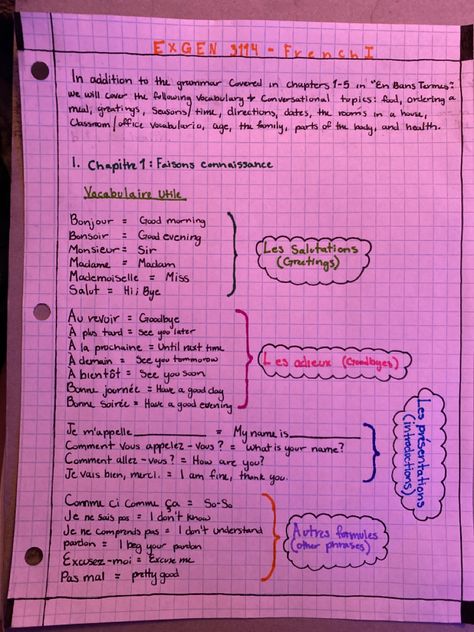 EXGEN 3114 - French I
In addition to the grammar covered in chapters 1-5 in "En Bons Termes":
we will cover the following vocabulary & conversational topics: food, ordering a
meal, greetings, seasons/time, directions, dates, the rooms in a house,
classroom/office vocabulario, age, the family, parts of the body, and health.
1. Chapitre 1: Faisons connaissance
Vocabulaire Utile
Bonjour = Good morning
Bonsoir = Good evening
Monsieur = Sir
Madame = Madam
Mademoiselle = Miss
Salut = Hi; Bye
Les Salutations
(Greetings)
Au revoir = Goodbye
À plus tard = See you later
À la prochaine = Until next time
À demain = See you tommorow
À bientôt = See you soon
Bonne journée = Have a good day
Bonne Soirée = Have a good evening
Les adieux (Goodbyes)
Je m'appelle ____________ = My name is ____________
Comment vous appelez-vous? = What is your name?
Comment allez-vous? = How are you?
Je vais bien, merci. = I am fine, thank you.
Les présentations
(introductions)
Comme ci Comme ça = So-So
Je ne sais pas = I don't know
Je ne comprends pas = I don't understand
pardon = I beg your pardon
Excusez-moi = Excuse me
Pas mal = pretty good
Autres formules
(other phrases)